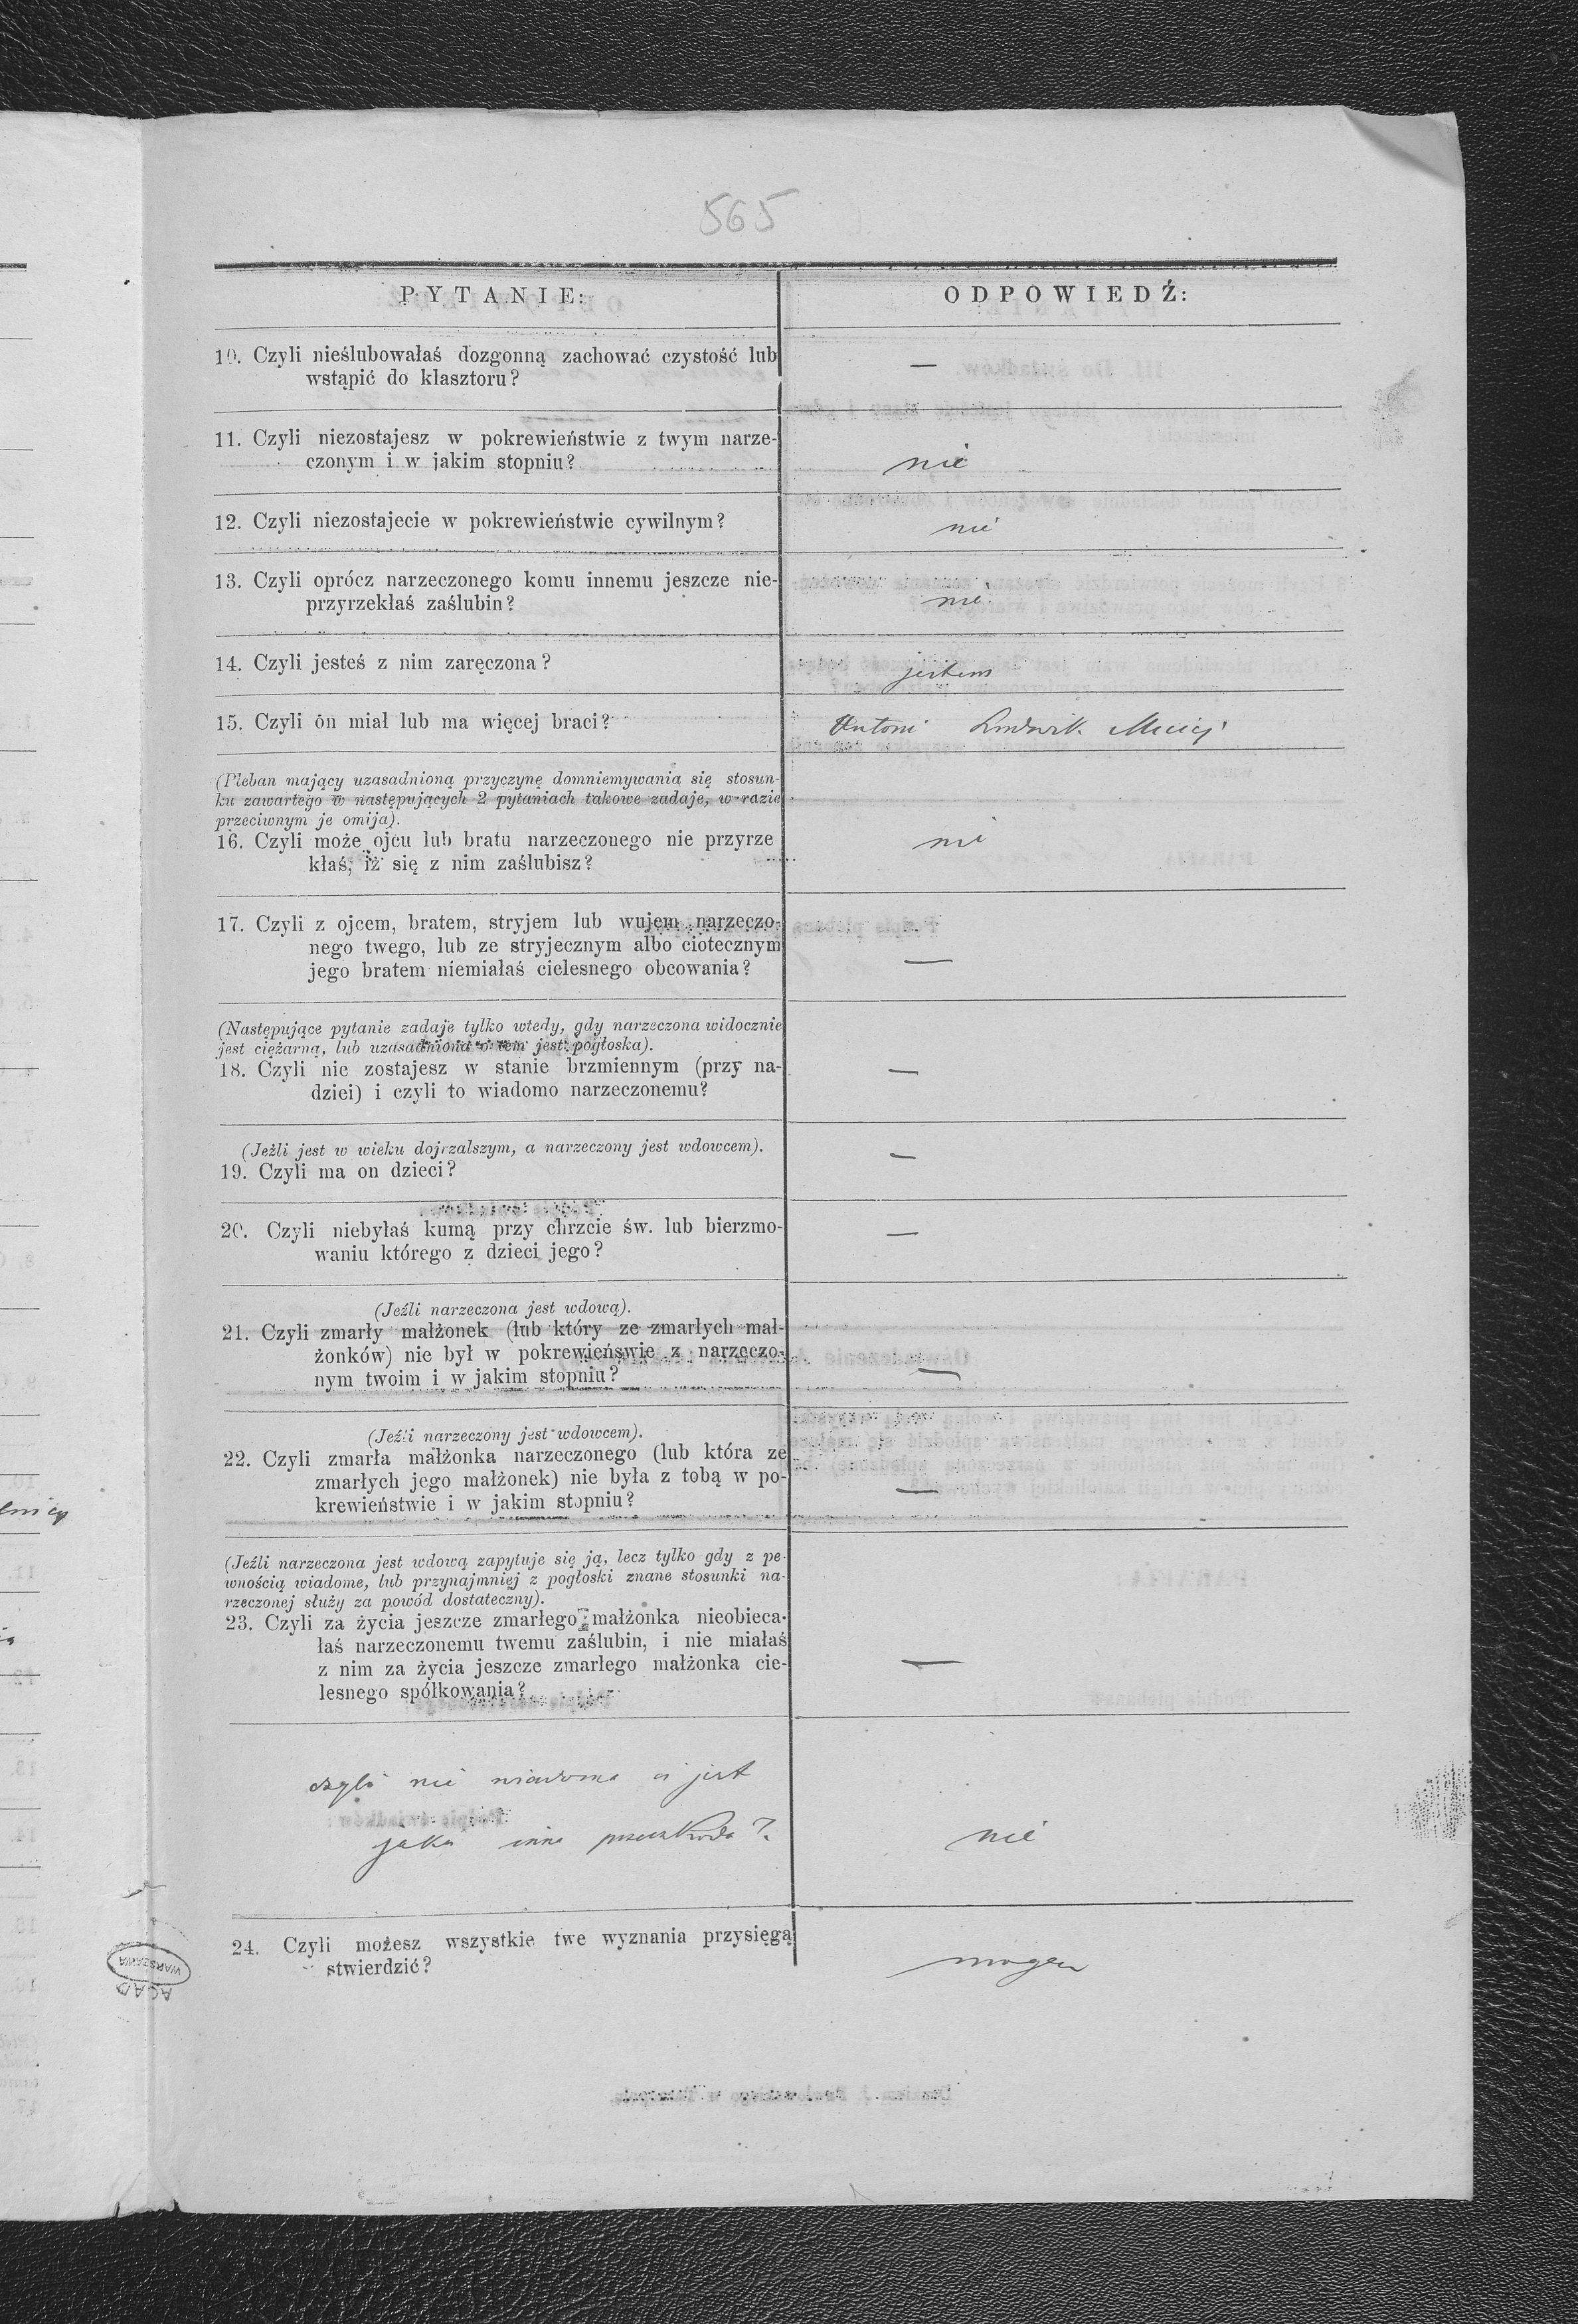 565
PYTANIE:
ODPOWIEDŹ:
10. Czyli nieślubowałaś dozgonną zachować czystość lub
wstąpić do klasztoru?
—
11. Czyli niezostajesz w pokrewieństwie z twym narze-
czonym i w jakim stopniu?
nie
12. Czyli niezostajecie w pokrewieństwie cywilnym?
nie
13. Czyli oprócz narzeczonego komu innemu jeszcze nie-
przyrzekłaś zaślubin?
nie
14. Czyli jesteś z nim zaręczona?
jestem
15. Czyli on miał lub ma więcej braci?
Antoni Ludwik Maciej
(Pleban mający uzasadnioną przyczynę domniemywania się stosun-
ku zawartego w następujących 2 pytaniach takowe zadaje, w razie
przeciwnym je omija).
16. Czyli może ojcu lub bratu narzeczonego nie przyrze
kłaś, iż się z nim zaślubisz?
nie
17. Czyli z ojcem, bratem, stryjem lub wujem narzeczo-
nego twego, lub ze stryjecznym albo ciotecznym
jego bratem niemiałaś cielesnego obcowania?
—
(Następujące pytanie zadaje tylko wtedy, gdy narzeczona widocznie
jest ciężarna, lub uzasadniona o tem jest pogłoska).
18. Czyli nie zostajesz w stanie brzmiennym (przy na-
dziei) i czyli to wiadomo narzeczonemu?
—
(Jeźli jest w wieku dojrzalszym, a narzeczony jest wdowcem).
19. Czyli ma on dzieci?
—
20. Czyli niebyłaś kumą przy chrzcie św. lub bierzmo-
waniu którego z dzieci jego?
—
(Jeźli narzeczona jest wdową).
21. Czyli zmarły małżonek (lub który ze zmarłych mał-
żonków) nie był w pokrewieńswie z narzeczo-
nym twoim i w jakim stopniu?
—
(Jeźli narzeczony jest wdowcem).
22. Czyli zmarła małżonka narzeczonego (lub która ze
zmarłych jego małżonek) nie była z tobą w po-
krewieństwie i w jakim stopniu?
—
(Jeźli narzeczona jest wdową zapytuje się ją, lecz tylko gdy z pe-
wnością wiadome, lub przynajmniej z pogłoski znane stosunki na-
rzeczonej służy za powód dostateczny).
23. Czyli za życia jeszcze zmarłego małżonka nieobieca-
łaś narzeczonemu twemu zaślubin, i nie miałaś
z nim za życia jeszcze zmarłego małżonka cie-
lesnego spółkowania?
—
czyli nie wiadoma ci jest
jaka inna przeszkoda?
nie
24. Czyli możesz wszystkie twe wyznania przysięgą
stwierdzić?
mogę
AGAD
WARSZAWA